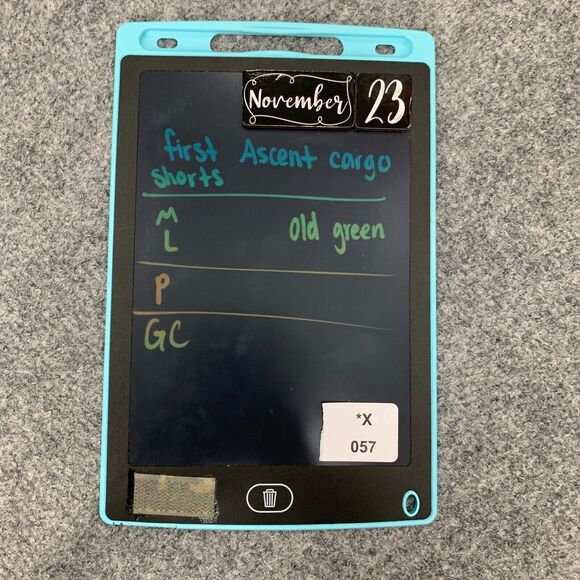 November 23
first Ascent cargo
shorts
M
L old green
P
GC
*X
057